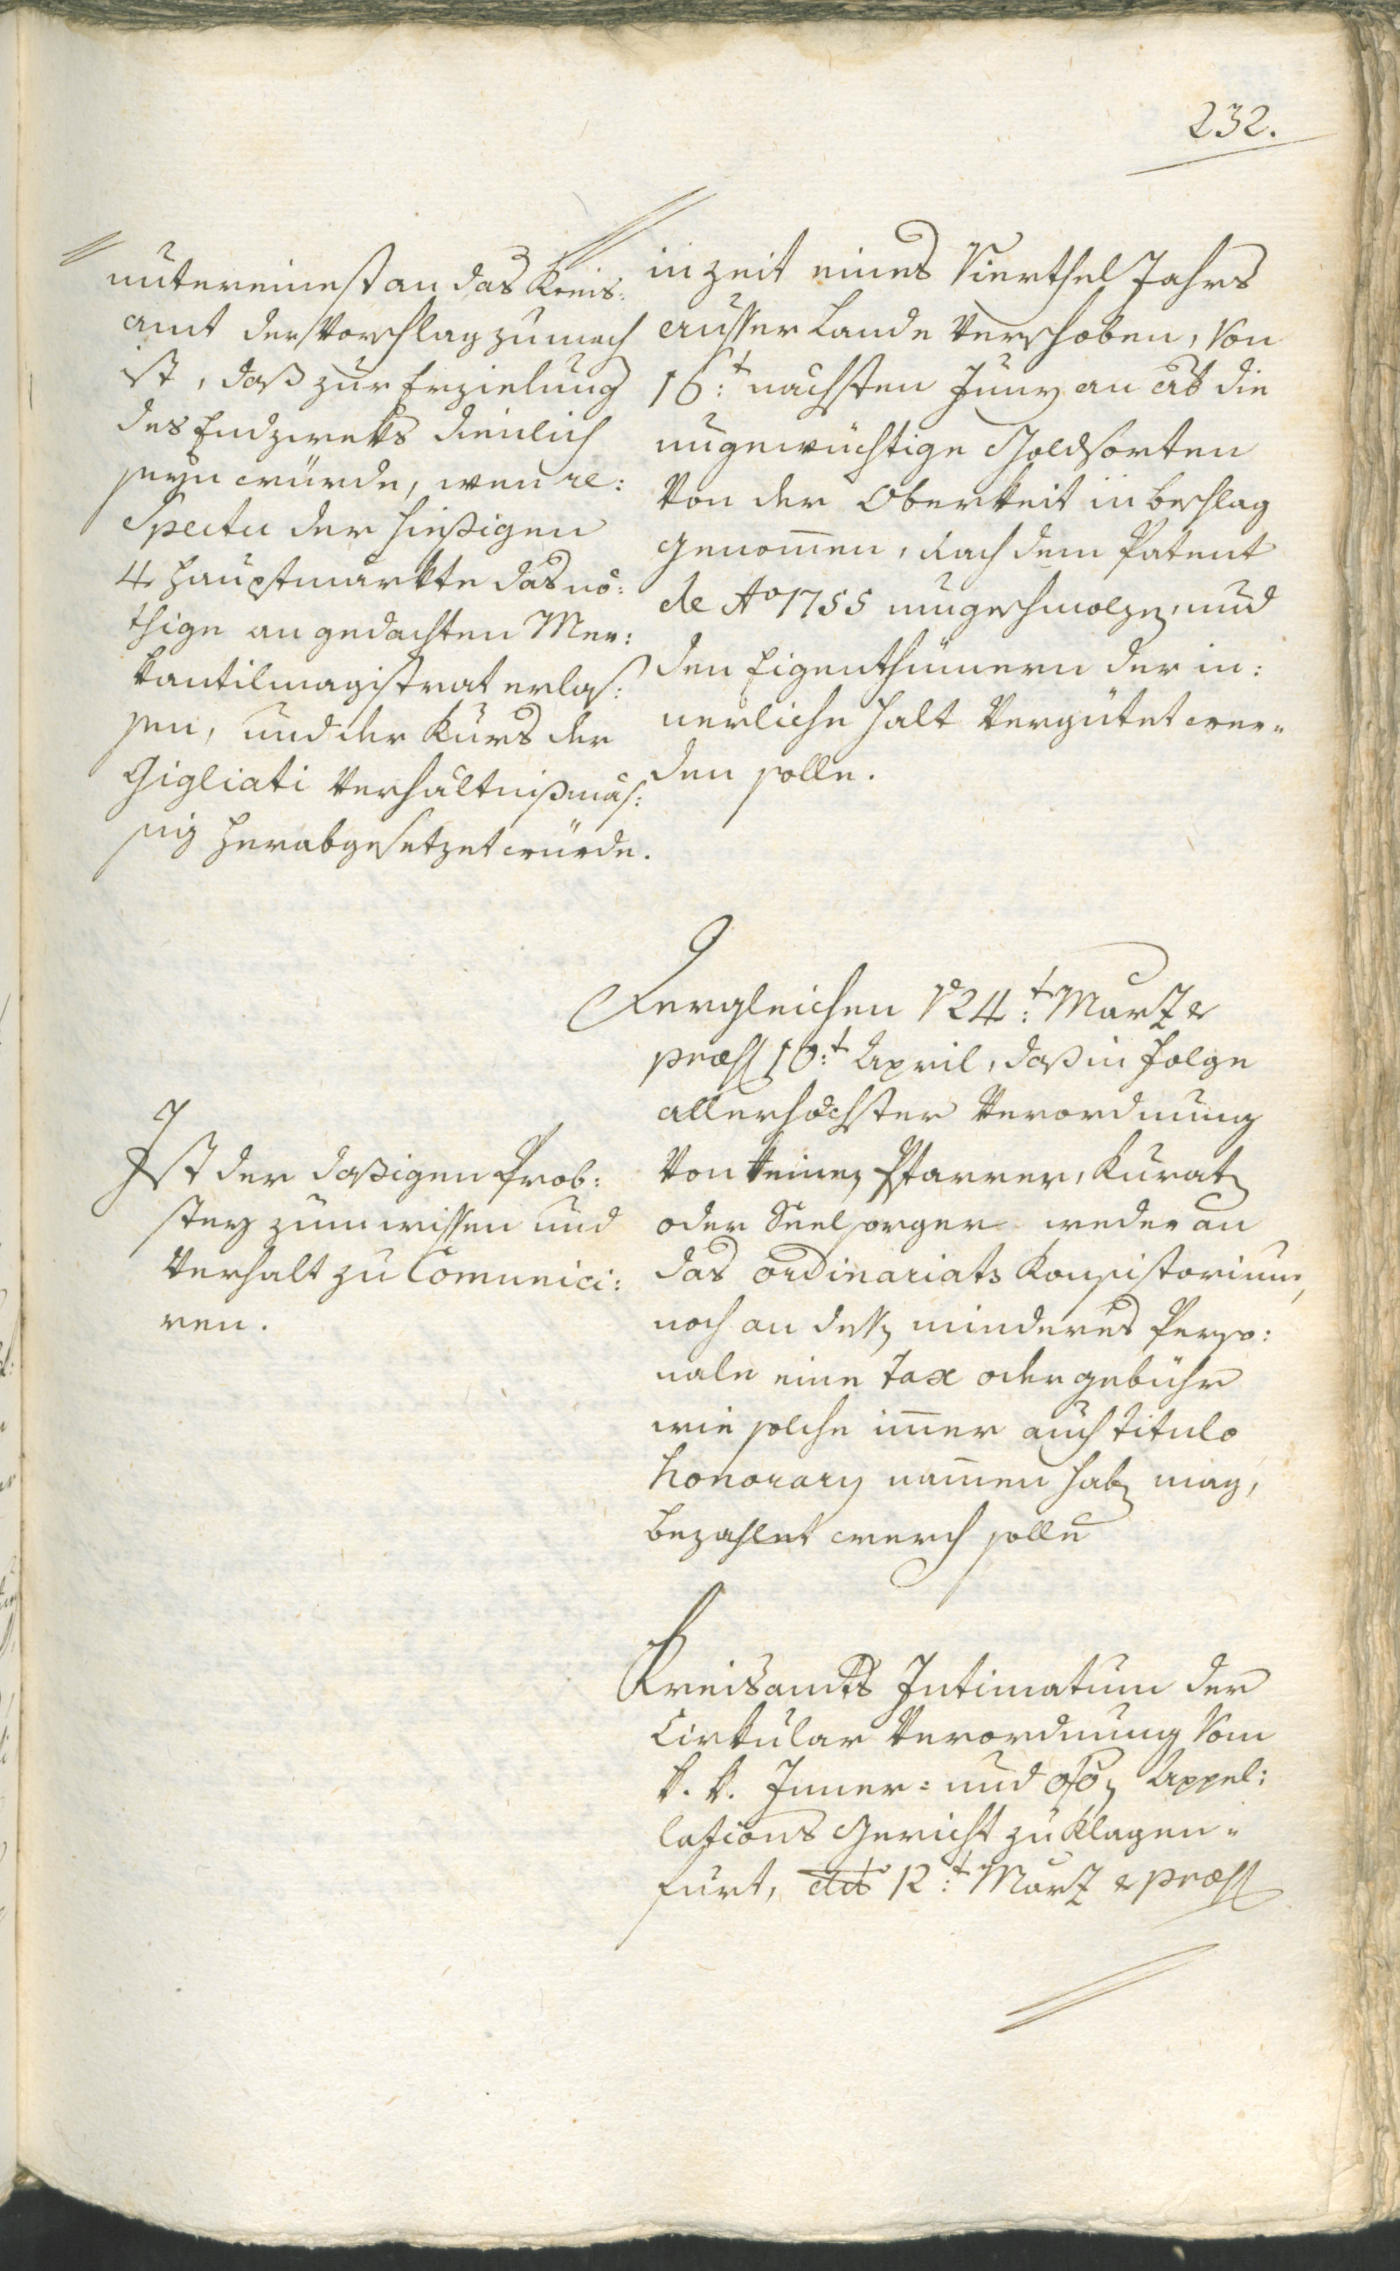 232.
untereinest an das Kreis:
amt der Vorschlag zu mach
ist, daß zur Erzielung
des Endzweks dienlich
seyn würde, wen re:
spectu der hießigen
4 Hauptmärkte das nö:
thige an gedachten Mer:
kantilmagistrat erlas:
sen, und der Kurs der
Gigliati verhältnißmäs:
sig herabgesetzet würde.
in zeit eines Vierthel Jahrs
ausser Lande verschoben, von
16:t nächsten Juny an ab die
ungewichtige Goldsorten
von der Oberkeit in beschlag
genom̅en, nach dem Patent
de Ao 1755 umgeschmolzen, und
den Eigenthümern der in:
nerliche Halt vergütet wer=
den solle.
Dergleichen Vo 24:t März &
præs 10:t April, daß in Folge
allerhöchster Verordnung
von keinen Pfarrer, Kuraten
oder Seelsorger weder an
das ordinariats Konsistorium,
noch an dessen minderes Perso:
nale eine Tax oder gebühr
wie solche im̅er auch titulo
honorary nam̅en haben mag,
bezahlet werden solle
Ist der daßigen Prob:
stey zum wissen und
Verhalt zu Comunici:
ren.
Kreisamts Intimatum der
Cirkular Verordnung vom
k. k. Inner= und oö Appel:
lations Gericht zu Klagen=
furt, dto 12:t März & præs